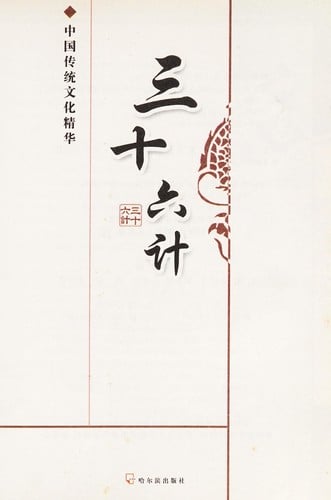 中国传统文化精华
三十六计
三十
六計
哈尔滨出版社